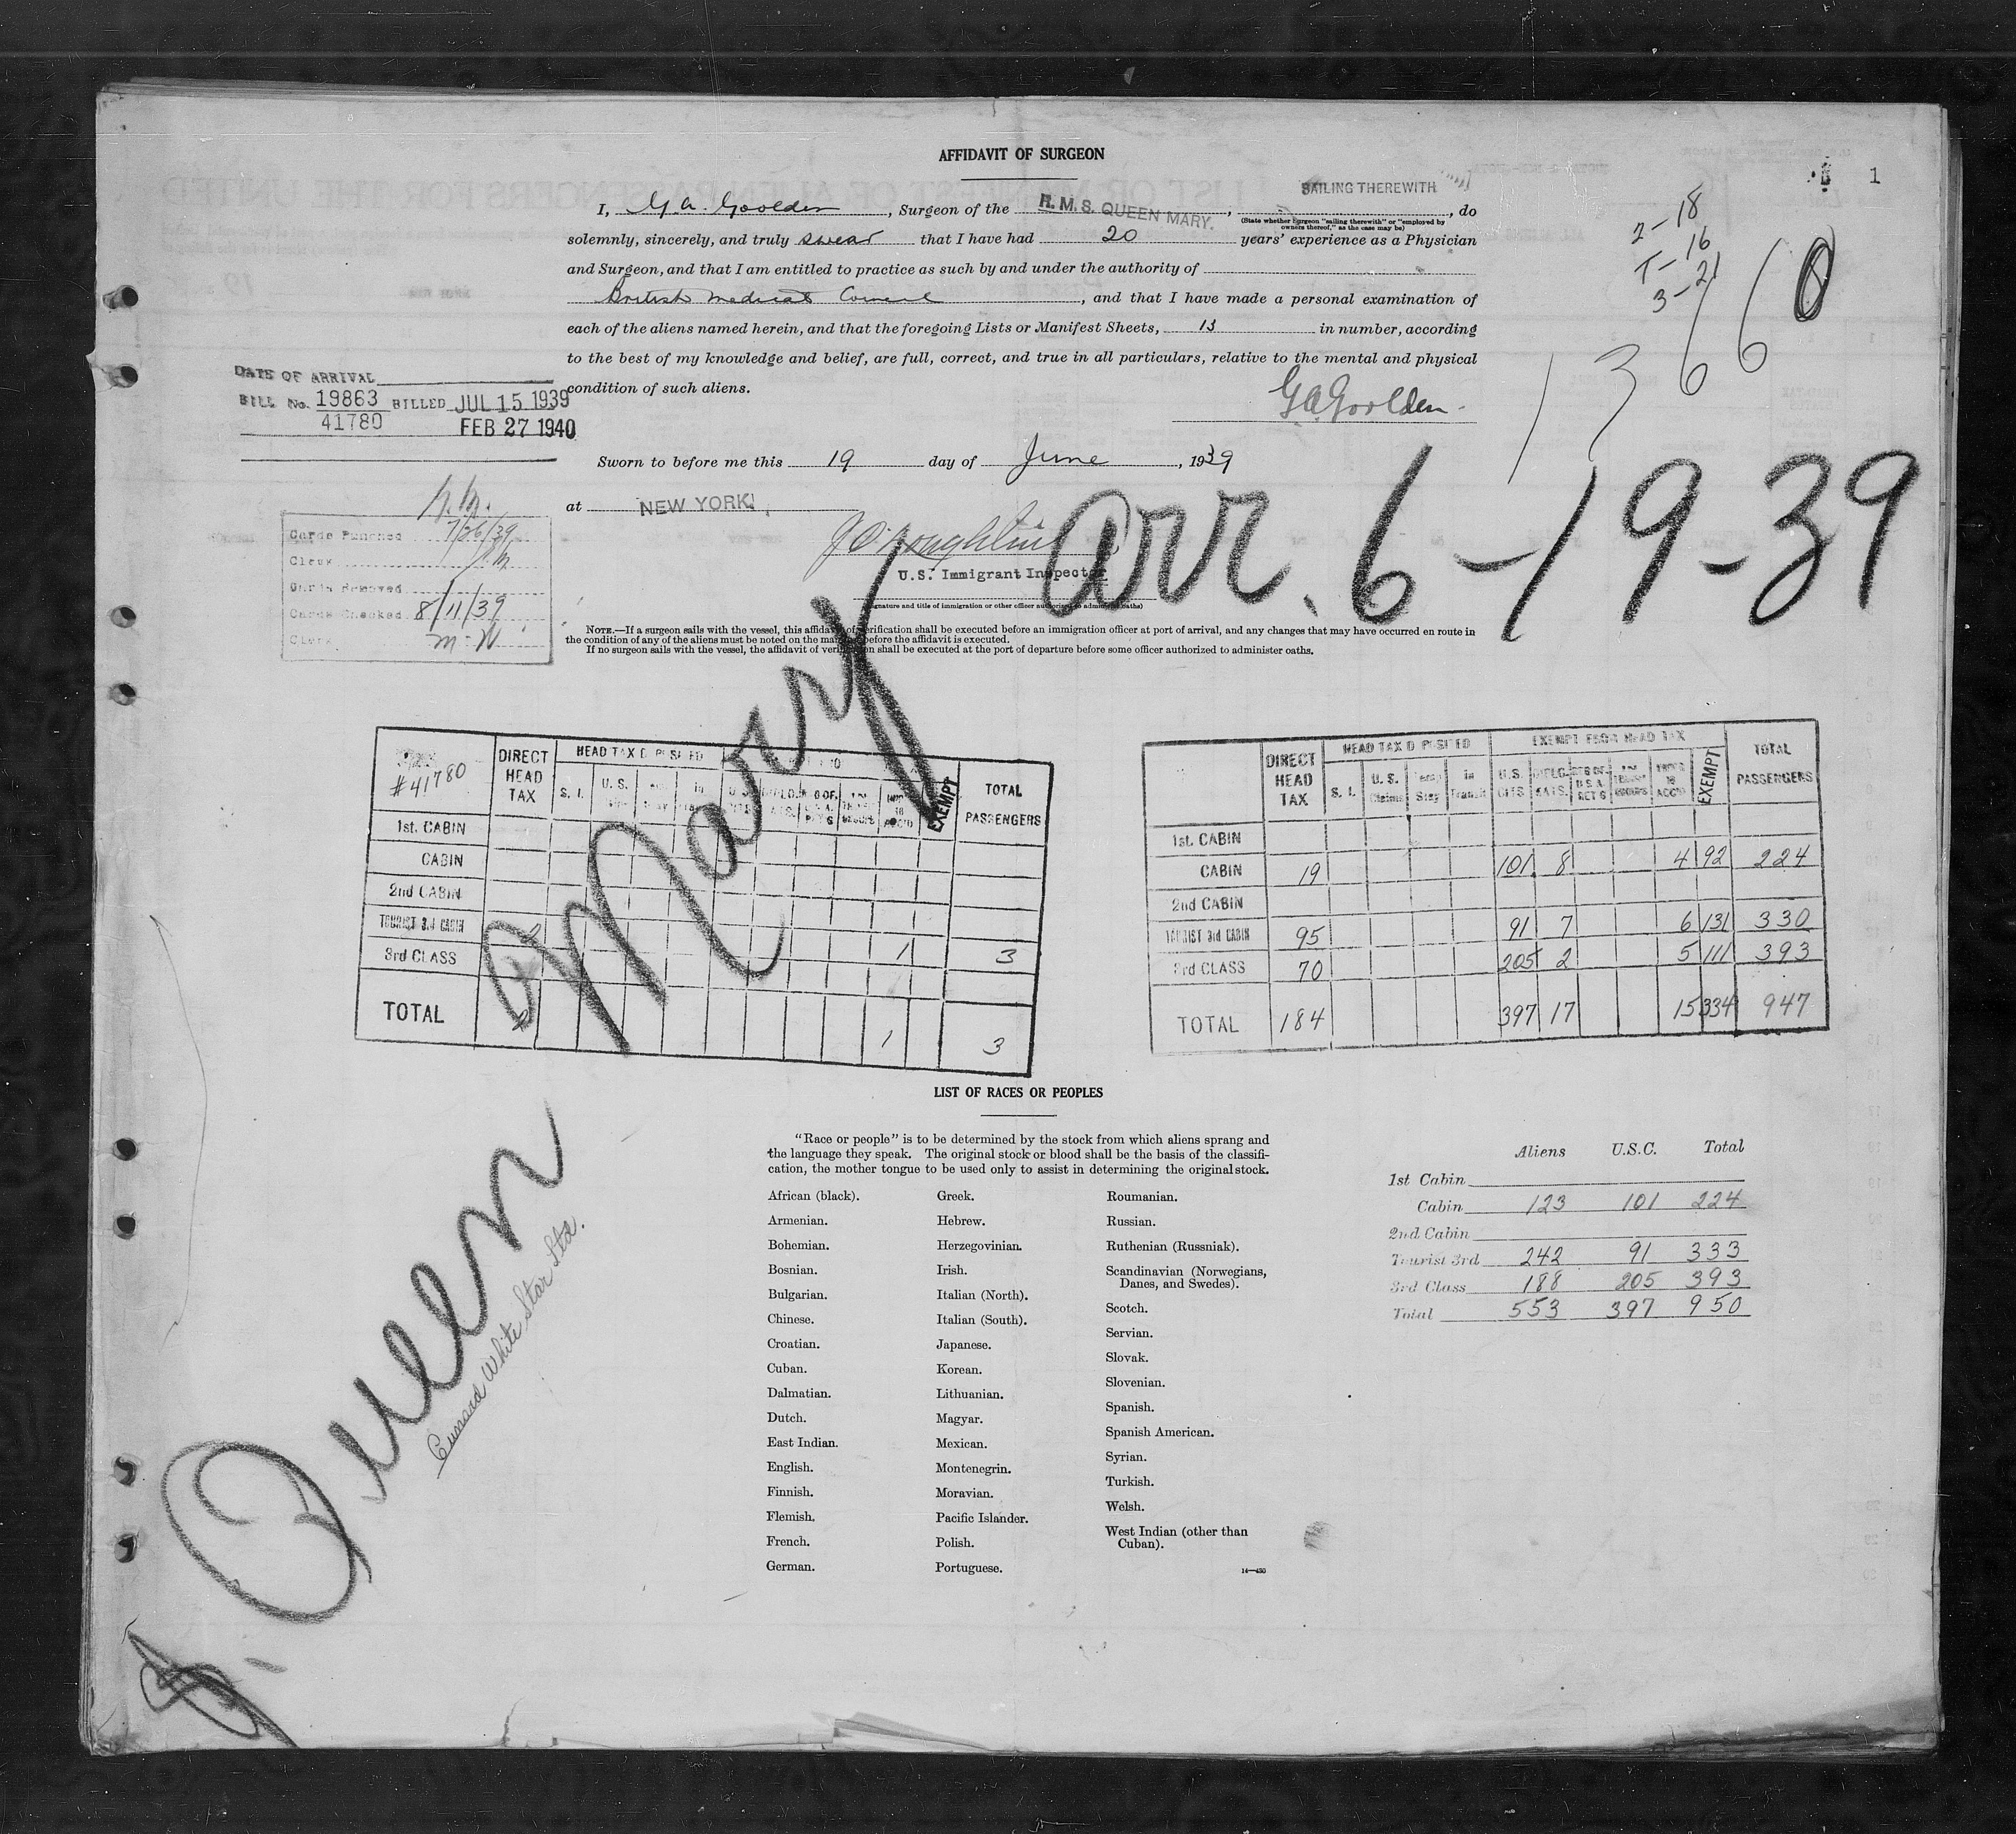 AFFIDAVIT OF SURGEON
1
I, G. A. Goolden, Surgeon of the R.M.S. QUEEN MARY., SAILING THEREWITH, do
(State whether Surgeon "sailing therewith" or "employed by
owners thereof," as the case may be)
solemnly, sincerely, and truly swear that I have had 20 years' experience as a Physician
and Surgeon, and that I am entitled to practice as such by and under the authority of
British Medical Council, and that I have made a personal examination of
each of the aliens named herein, and that the foregoing Lists or Manifest Sheets, 13 in number, according
to the best of my knowledge and belief, are full, correct, and true in all particulars, relative to the mental and physical
condition of such aliens.
G A Goolden.
2-18
T-16
3-21
13660
DATE OF ARRIVAL
BILL No. 19863 BILLED JUL 15 1939
41780 FEB 27 1940
Sworn to before me this 19 day of June, 1939
at NEW YORK.
U.S. Immigrant Inspector
(Signature and title of immigration or other officer authorized to administer oaths)
arr. 6-19-39
Cards Punched 7/26/39
Clerk
Cards Removed
Cards Checked 8/11/39
Clerk M.W.
NOTE.—If a surgeon sails with the vessel, this affidavit of verification shall be executed before an immigration officer at port of arrival, and any changes that may have occurred en route in
the condition of any of the aliens must be noted on the manifest before the affidavit is executed.
If no surgeon sails with the vessel, the affidavit of verification shall be executed at the port of departure before some officer authorized to administer oaths.
#41780 DIRECT HEAD TAX HEAD TAX DEPOSITED S. I. U. S. EXEMPT TOTAL PASSENGERS
1st. CABIN
CABIN
2nd CABIN
TOURIST 3rd CABIN 2
3rd CLASS 1 3
TOTAL 2 1 3
DIRECT HEAD TAX HEAD TAX DEPOSITED EXEMPT FROM HEAD TAX TOTAL PASSENGERS
S. I. U. S. Claims Temp Stay In Transit U.S. CITS. DIPLO. EXEMPT
1st. CABIN
CABIN 19 101 8 4 92 224
2nd CABIN
TOURIST 3rd CABIN 95 91 7 6 131 330
3rd CLASS 70 205 2 5 111 393
TOTAL 184 397 17 15 334 947
Queen Mary
Cunard White Star Ltd.
LIST OF RACES OR PEOPLES
"Race or people" is to be determined by the stock from which aliens sprang and
the language they speak. The original stock or blood shall be the basis of the classifi-
cation, the mother tongue to be used only to assist in determining the original stock.
African (black).
Armenian.
Bohemian.
Bosnian.
Bulgarian.
Chinese.
Croatian.
Cuban.
Dalmatian.
Dutch.
East Indian.
English.
Finnish.
Flemish.
French.
German.
Greek.
Hebrew.
Herzegovinian.
Irish.
Italian (North).
Italian (South).
Japanese.
Korean.
Lithuanian.
Magyar.
Mexican.
Montenegrin.
Moravian.
Pacific Islander.
Polish.
Portuguese.
Roumanian.
Russian.
Ruthenian (Russniak).
Scandinavian (Norwegians,
Danes, and Swedes).
Scotch.
Servian.
Slovak.
Slovenian.
Spanish.
Spanish American.
Syrian.
Turkish.
Welsh.
West Indian (other than
Cuban).
14—430
Aliens U.S.C. Total
1st Cabin
Cabin 123 101 224
2nd Cabin
Tourist 3rd 242 91 333
3rd Class 188 205 393
Total 553 397 950